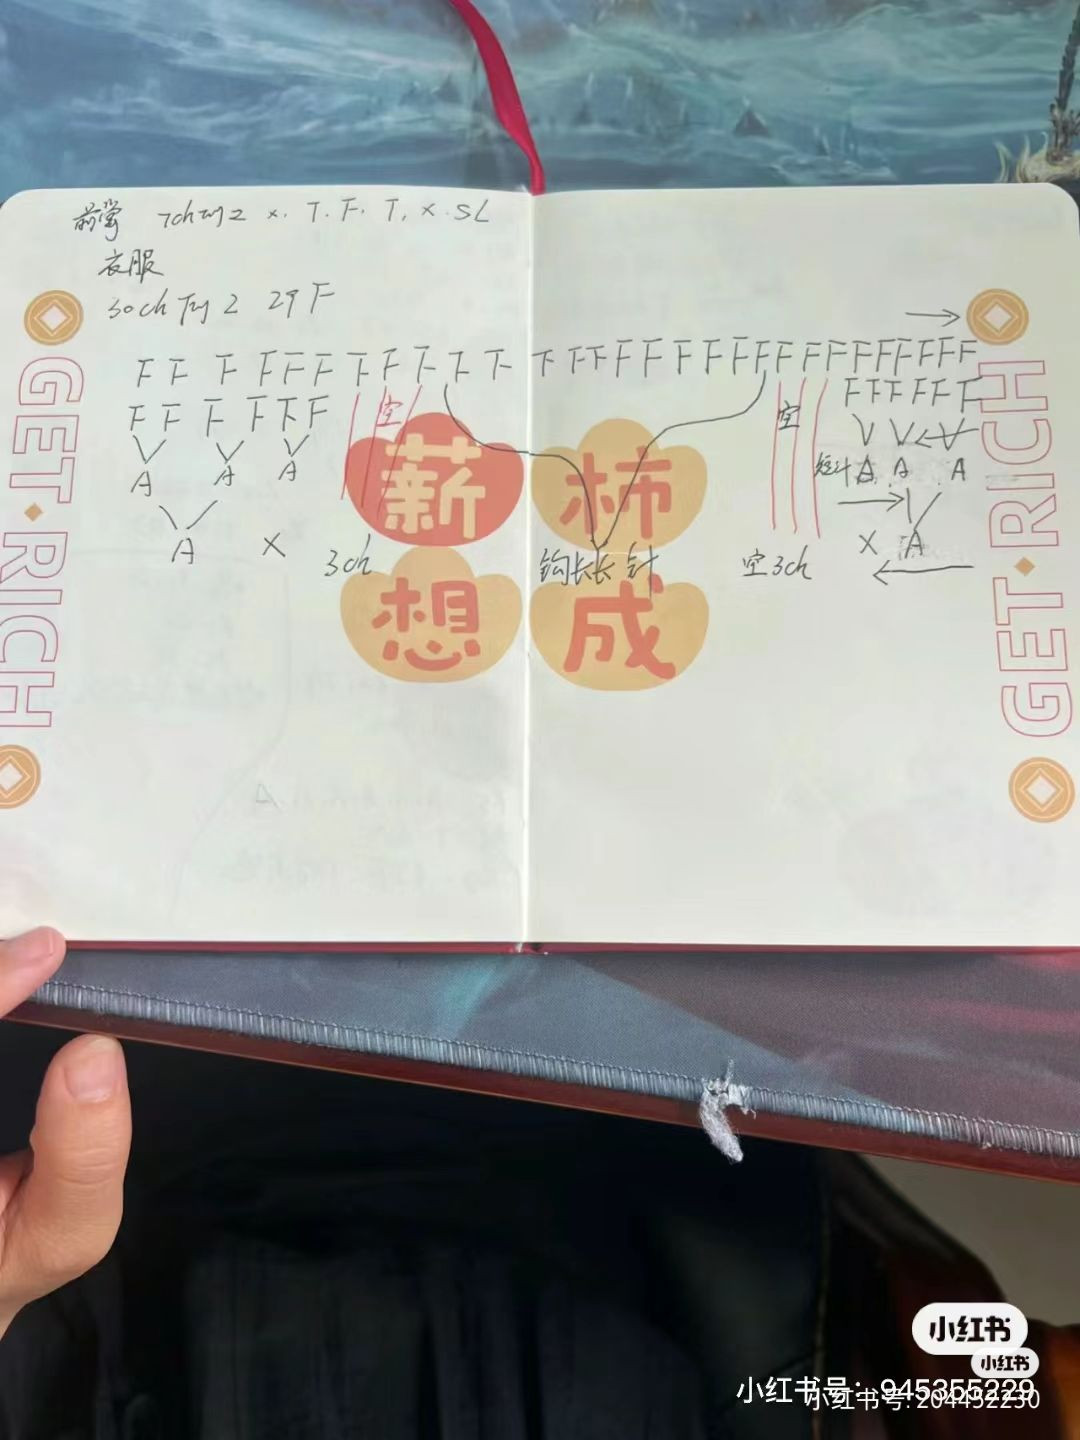 7ch 可 2 x. T. F. T, x. SL
衣服
30ch 可 2 29 F
F F F F F F F F F F F F F F F F F F F F F F F F F F F
F F F F F F
F F F F F F
空
空
V V V
V V V
A A A
短针 A A A
A X 3ch
钩长长针
空3ch
X A
薪 柿
想 成
GET·RICH
GET·RICH
小红书
小红书
小红书号: 945355229
小红书号: 204452230